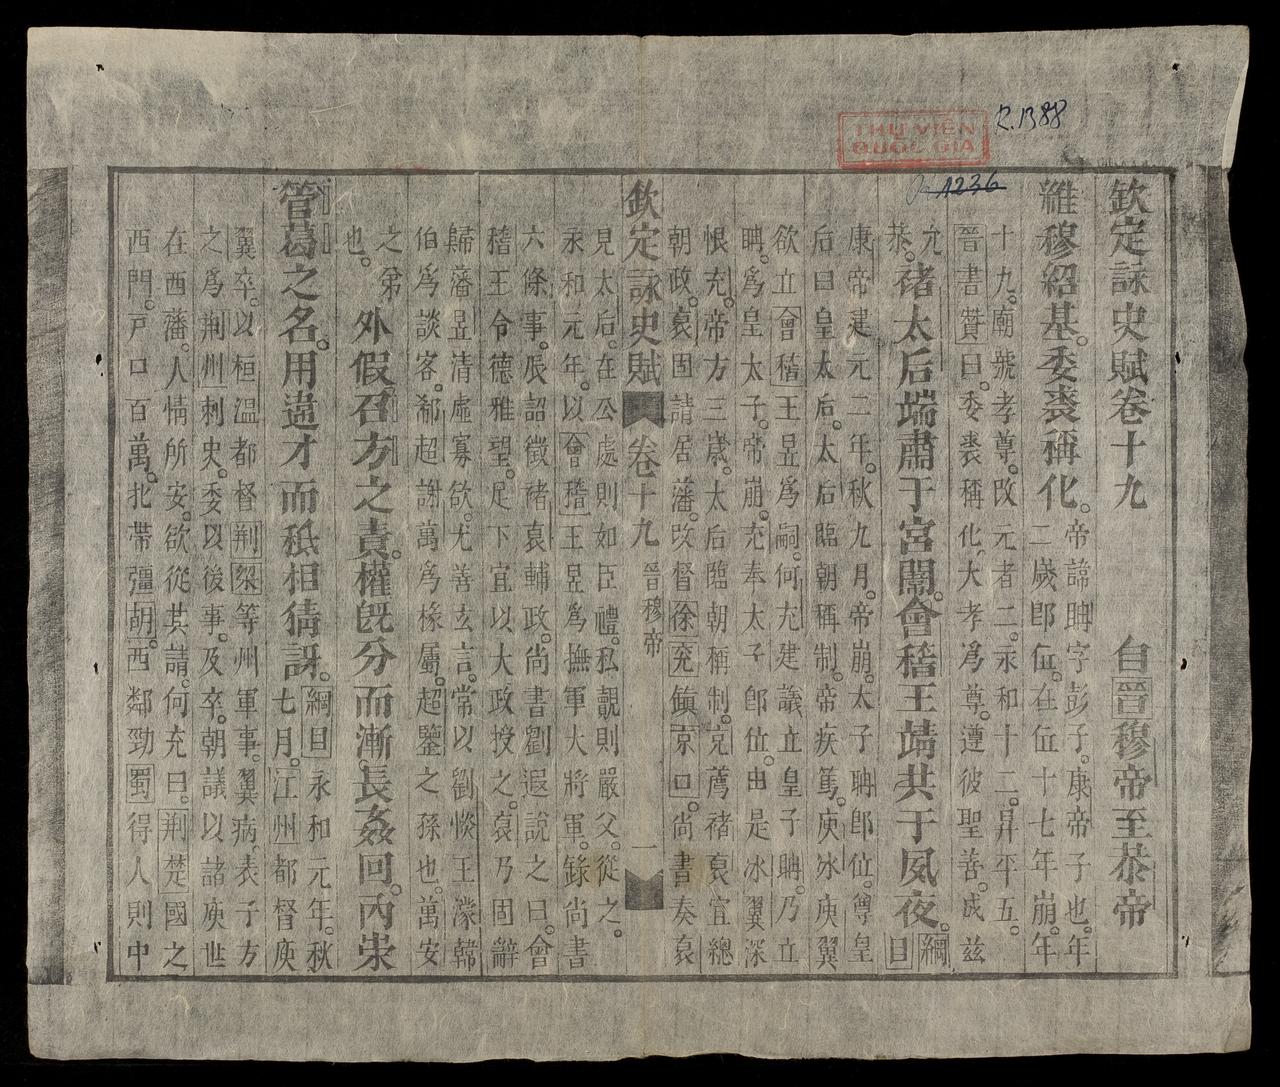 THƯ VIỆN
QUỐC GIA
R.1388
1236
欽定詠史賦卷十九
自晉穆帝至恭帝
維穆紹基。委裘稱化。
帝諱聃字彭子。康帝子也。年
二歲即位。在位十七年崩。年
十九。廟號孝尊。改元者二。永和十二。昇平五。
晉書贊曰。委裘稱化、大孝爲尊。遵彼聖善。成茲
允
恭。
褚太后端肅于宮闈。會稽王靖共于夙夜。
綱
目
康帝建元二年。秋九月。帝崩。太子聃即位。尊皇
后曰皇太后。太后臨朝稱制。帝疾篤。庾冰庾翼
欲立會稽王昱爲嗣。何充建議立皇子聃。乃立
聃。爲皇太子。帝崩。充奉太子即位。由是冰翼深
恨充。帝方三歲。太后臨朝稱制。充薦褚裒宜總
朝政。裒固請居藩。改督徐兗鎮京口。尚書奏裒
欽定詠史賦 卷十九 晉穆帝 一
見太后。在公處則如臣禮。私覿則嚴父。從之。
永和元年。以會稽王昱爲撫軍大將軍。錄尚書
六條事。辰詔徵褚裒輔政。尚書劉遐說之曰。會
稽王令德雅望。足下宜以大政授之。裒乃固辭
歸藩昱清虛寡欲。尤善玄言。常以劉惔王濛韓
伯爲談客。郗超謝萬爲椽屬。超鑒之孫也。萬安
之弟
也。
外假召方之責。權旣分而漸長姦回。內崇
管葛之名。用違才而秪相猜訝。
綱目永和元年。秋
七月。江州都督庾
翼卒。以桓溫都督荆梁等州軍事。翼病。表子方
之爲荆州刺史。委以後事。及卒。朝議以諸庾世
在西藩。人情所安。欲從其請。何充曰。荆楚國之
西門。戸口百萬。北帶彊胡。西鄰勁蜀得人則中